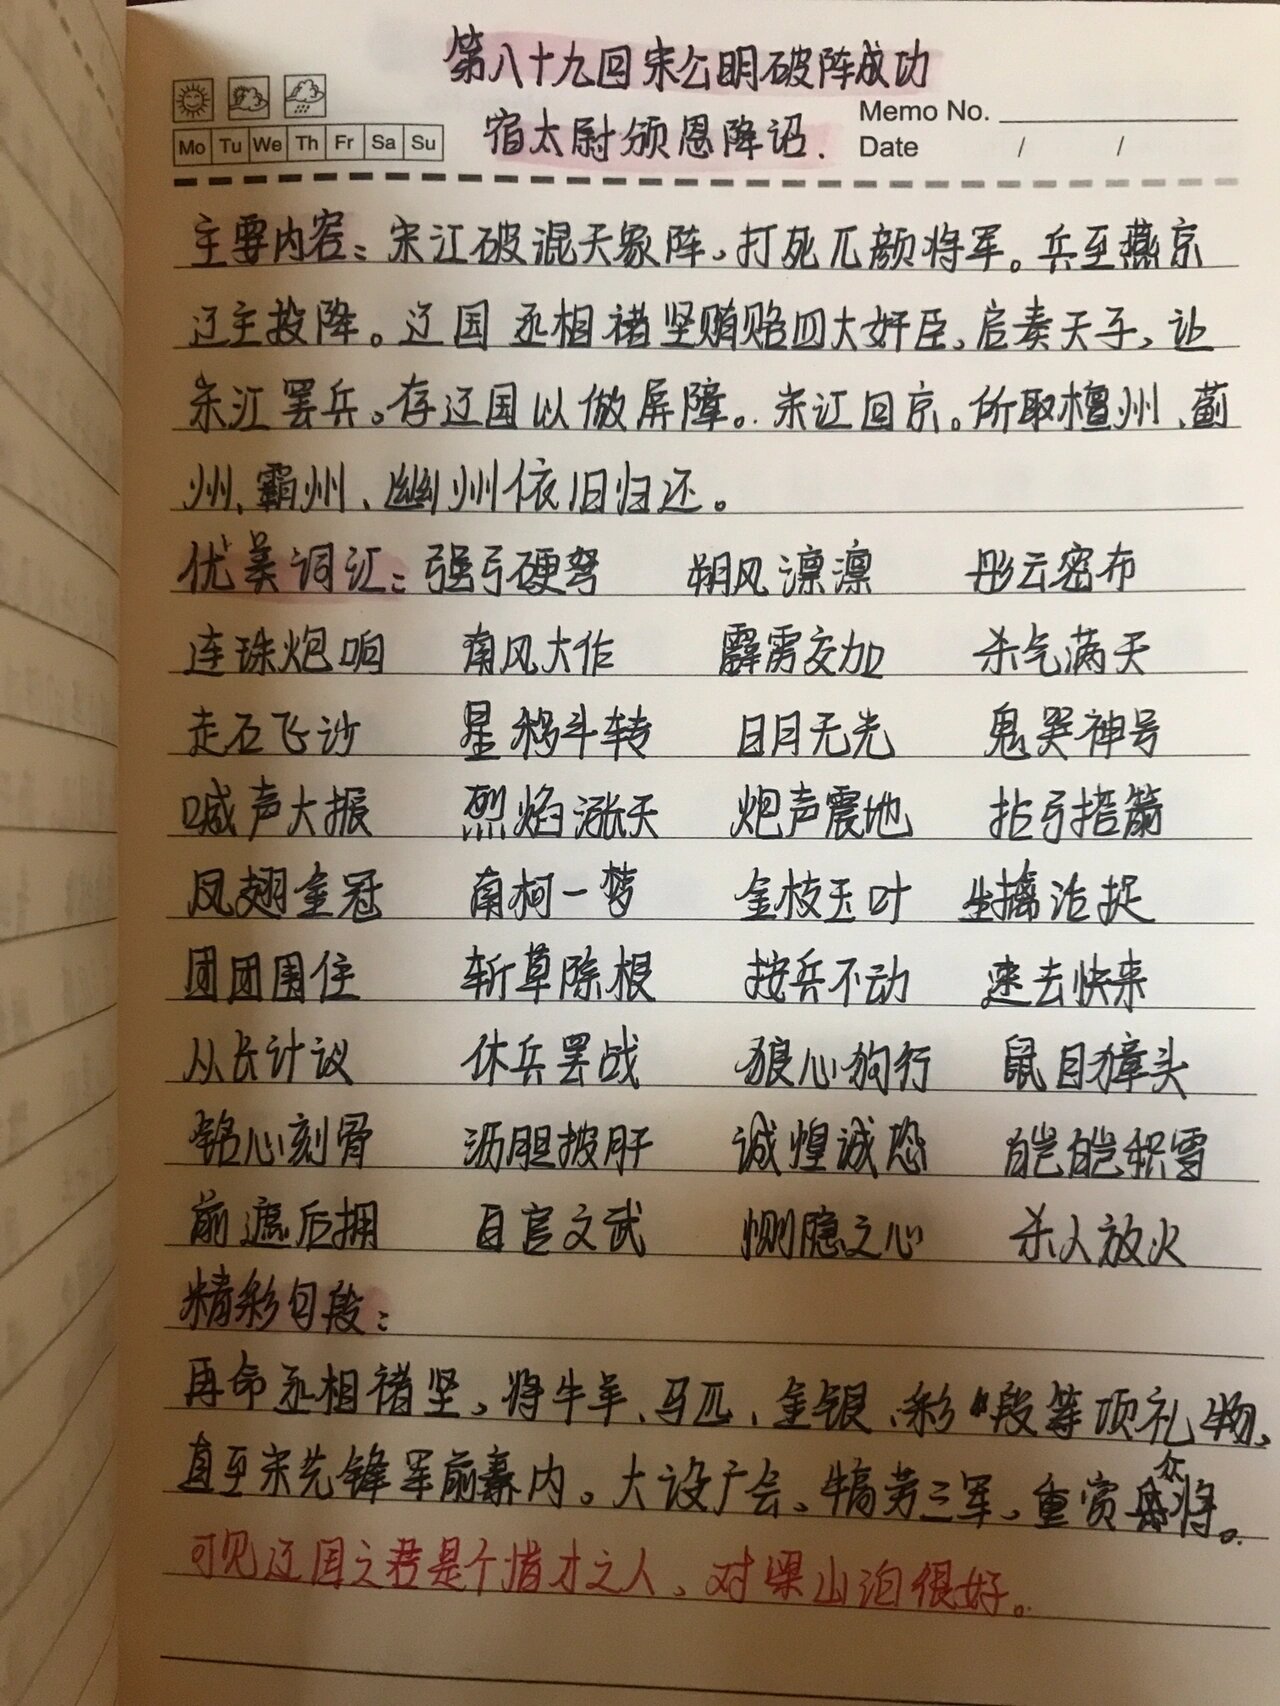 第八十九回宋公明破阵成功
宿太尉颁恩降诏.
Memo No.
Mo Tu We Th Fr Sa Su
Date / /
主要内容:宋江破混天象阵,打死兀颜将军。兵至燕京
辽主投降。辽国丞相褚坚贿赂四大奸臣,启奏天子,让
宋江罢兵。存辽国以做屏障。宋江回京。所取檀州、蓟
州、霸州、幽州依旧归还。
优美词汇:强弓硬弩 朔风凛凛 彤云密布
连珠炮响 南风大作 霹雳交加 杀气满天
走石飞沙 星移斗转 日月无光 鬼哭神号
喊声大振 烈焰涨天 炮声震地 拈弓搭箭
凤翅金冠 南柯一梦 金枝玉叶 生擒活捉
团团围住 斩草除根 按兵不动 速去快来
从长计议 休兵罢战 狼心狗行 鼠目獐头
铭心刻骨 沥胆披肝 诚惶诚恐 皑皑积雪
前遮后拥 百官文武 恻隐之心 杀人放火
精彩句段:
再命丞相褚坚,将牛羊、马匹、金银、彩段等项礼物,
直至宋先锋军前幕内。大设广会,犒劳三军,重赏众将。
可见辽国之君是个惜才之人,对梁山泊很好。